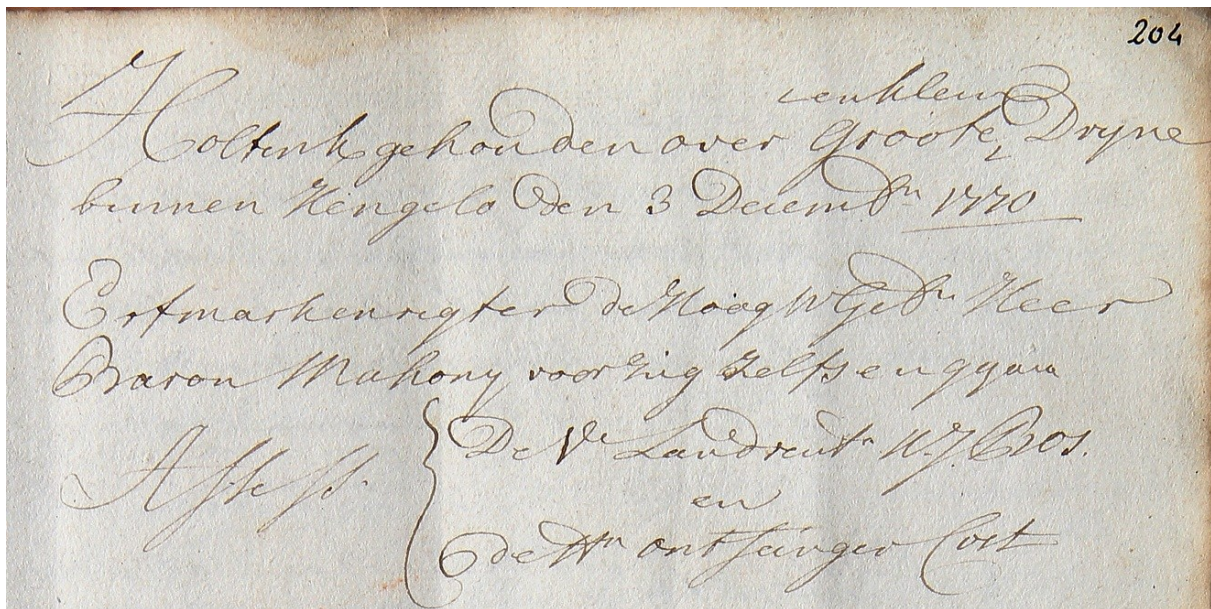 204
en klein
Holtink gehouden over Groote, Dryne
binnen Hengelo den 3 Decembr 1770
Erfmarkenrigter de Hoog W Gebr Heer
Baron Mahony voor zig zelfs en qqua
Assess. De Vr Landrentr W. J. Cros.
en
de Hr ontfanger Cost